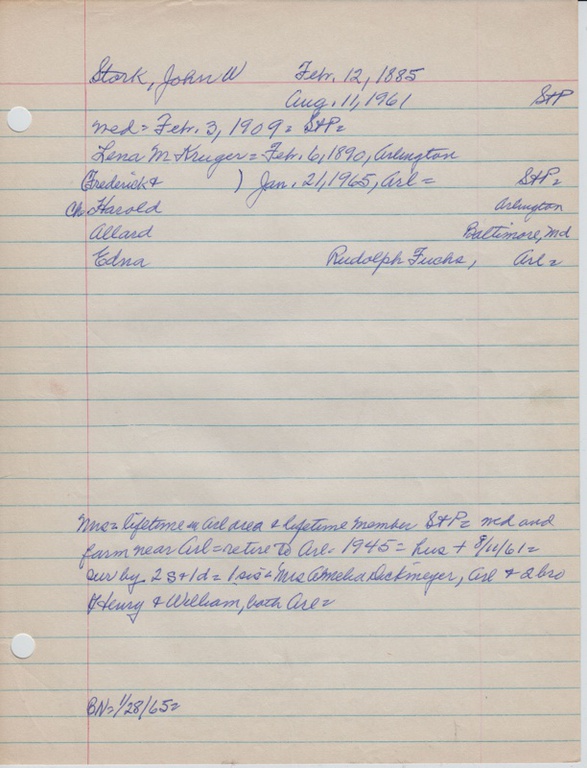 Stork, John W Feb. 12, 1885
Aug. 11, 1961 StP
med = Feb. 3, 1909 = StP =
Lena M Kruger = Feb. 6, 1890, Arlington
Frederick + ) Jan. 21, 1965, Arl = StP =
Ch Harold Arlington
Allard Baltimore, Md
Edna Rudolph Fuchs, Arl =
Mrs = lifetime in Arl area + lifetime member StP = md and
farm near Arl = retire to Arl. 1945 = hus + 8/11/61 =
sur by 2 s + 1 d = 1 sis = Mrs Amelia Dickmeyer, Arl + 2 bro
Henry + William, both Arl =
BN = 1/28/65 =